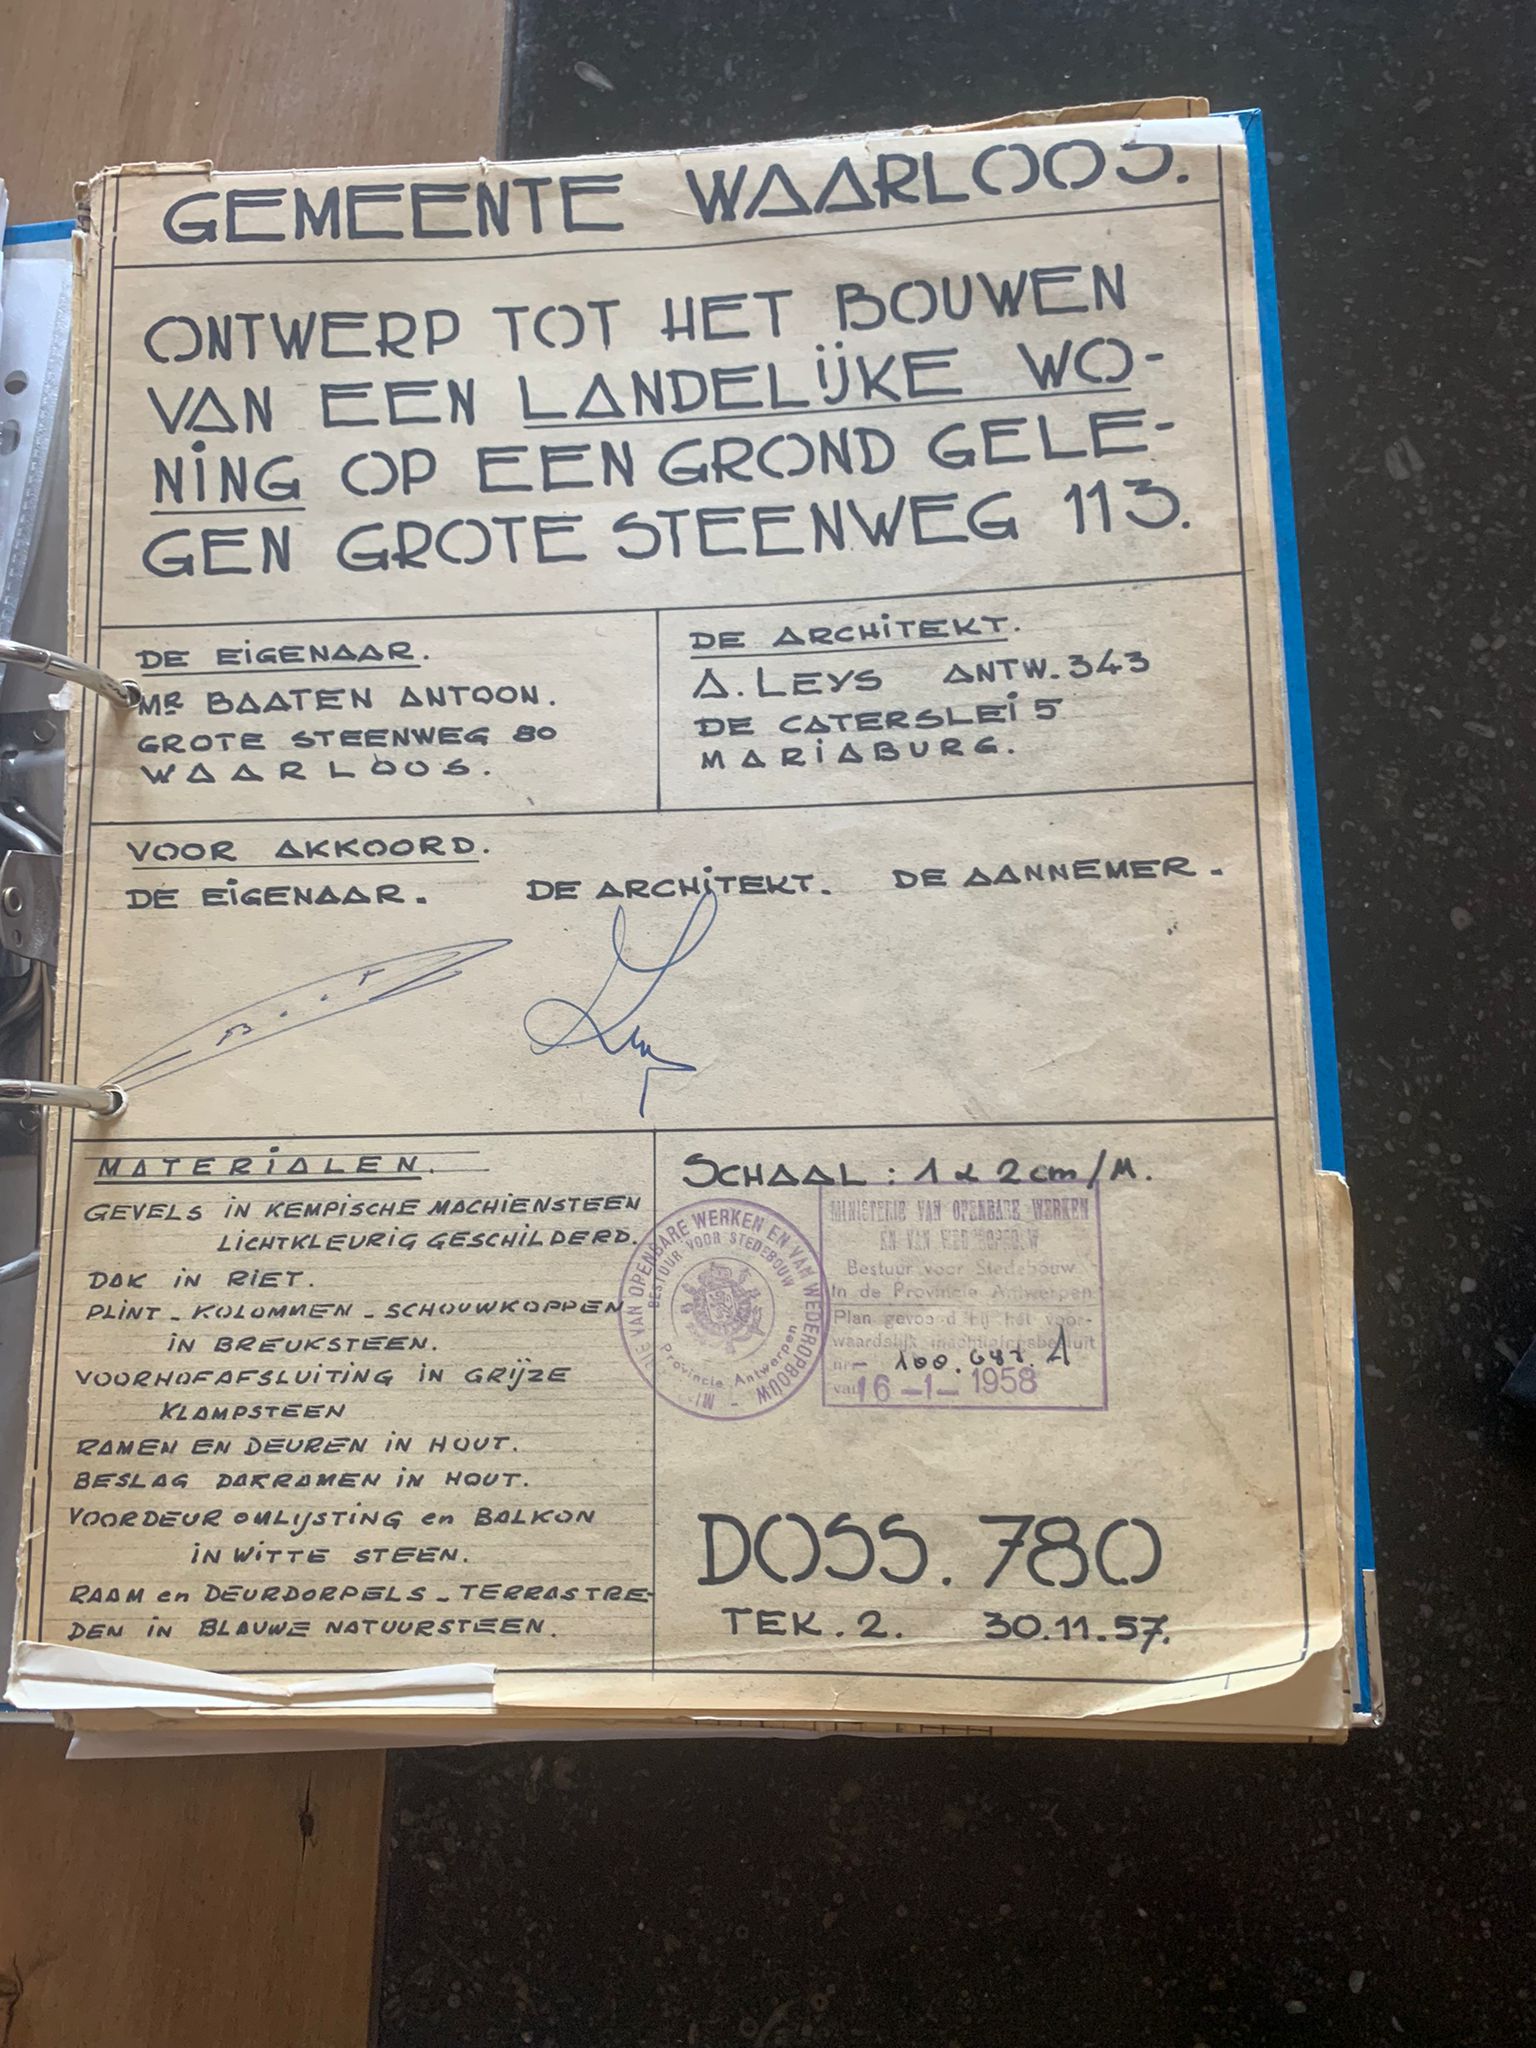 GEMEENTE WAARLOOS.
ONTWERP TOT HET BOUWEN
VAN EEN LANDELIJKE WO-
NING OP EEN GROND GELE-
GEN GROTE STEENWEG 113.
DE EIGENAAR.
MR BAATEN ANTOON.
GROTE STEENWEG 80
WAARLOOS.
DE ARCHITEKT.
A. LEYS ANTW. 343
DE CATERSLEI 5
MARIABURG.
VOOR AKKOORD.
DE EIGENAAR. DE ARCHITEKT. DE AANNEMER.
MATERIALEN.
GEVELS IN KEMPISCHE MACHIENSTEEN
LICHTKLEURIG GESCHILDERD.
DAK IN RIET.
PLINT - KOLOMMEN - SCHOUWKOPPEN
IN BREUKSTEEN.
VOORHOFAFSLUITING IN GRIJZE
KLAMPSTEEN
RAMEN EN DEUREN IN HOUT.
BESLAG DAKRAMEN IN HOUT.
VOORDEUR OMLIJSTING en BALKON
IN WITTE STEEN.
RAAM en DEURDORPELS - TERRASTRE-
DEN IN BLAUWE NATUURSTEEN.
SCHAAL : 1 à 2 cm/M.
VAN OPENBARE WERKEN EN VAN WEDEROPBOUW
BESTUUR VOOR STEDEBOUW
Provincie Antwerpen
MINISTERIE VAN OPENBARE WERKEN
EN VAN WEDEROPBOUW
Bestuur voor Stedebouw
in de Provincie Antwerpen
Plan gevoegd bij het voor-
waardelijk machtigingsbesluit
nr
van 16-1-1958
DOSS. 780
TEK. 2. 30.11.57.